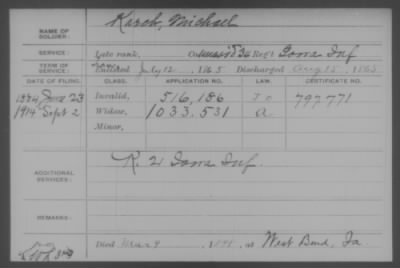 NAME OF SOLDIER: Karch, Michael
SERVICE: Late rank, Co. 36 Reg't Iowa Inf
TERM OF SERVICE: Enlisted July 12, 1865 Discharged Aug 15, 1865
DATE OF FILING. CLASS. APPLICATION NO. LAW. CERTIFICATE NO.
1884 June 23 Invalid, 516,186 797771
1914 Sept 2 Widow, 1033,531 a
Minor,
ADDITIONAL SERVICES: K. 21 Iowa Inf.
REMARKS:
Died Mar 9, at West Bend, Ia